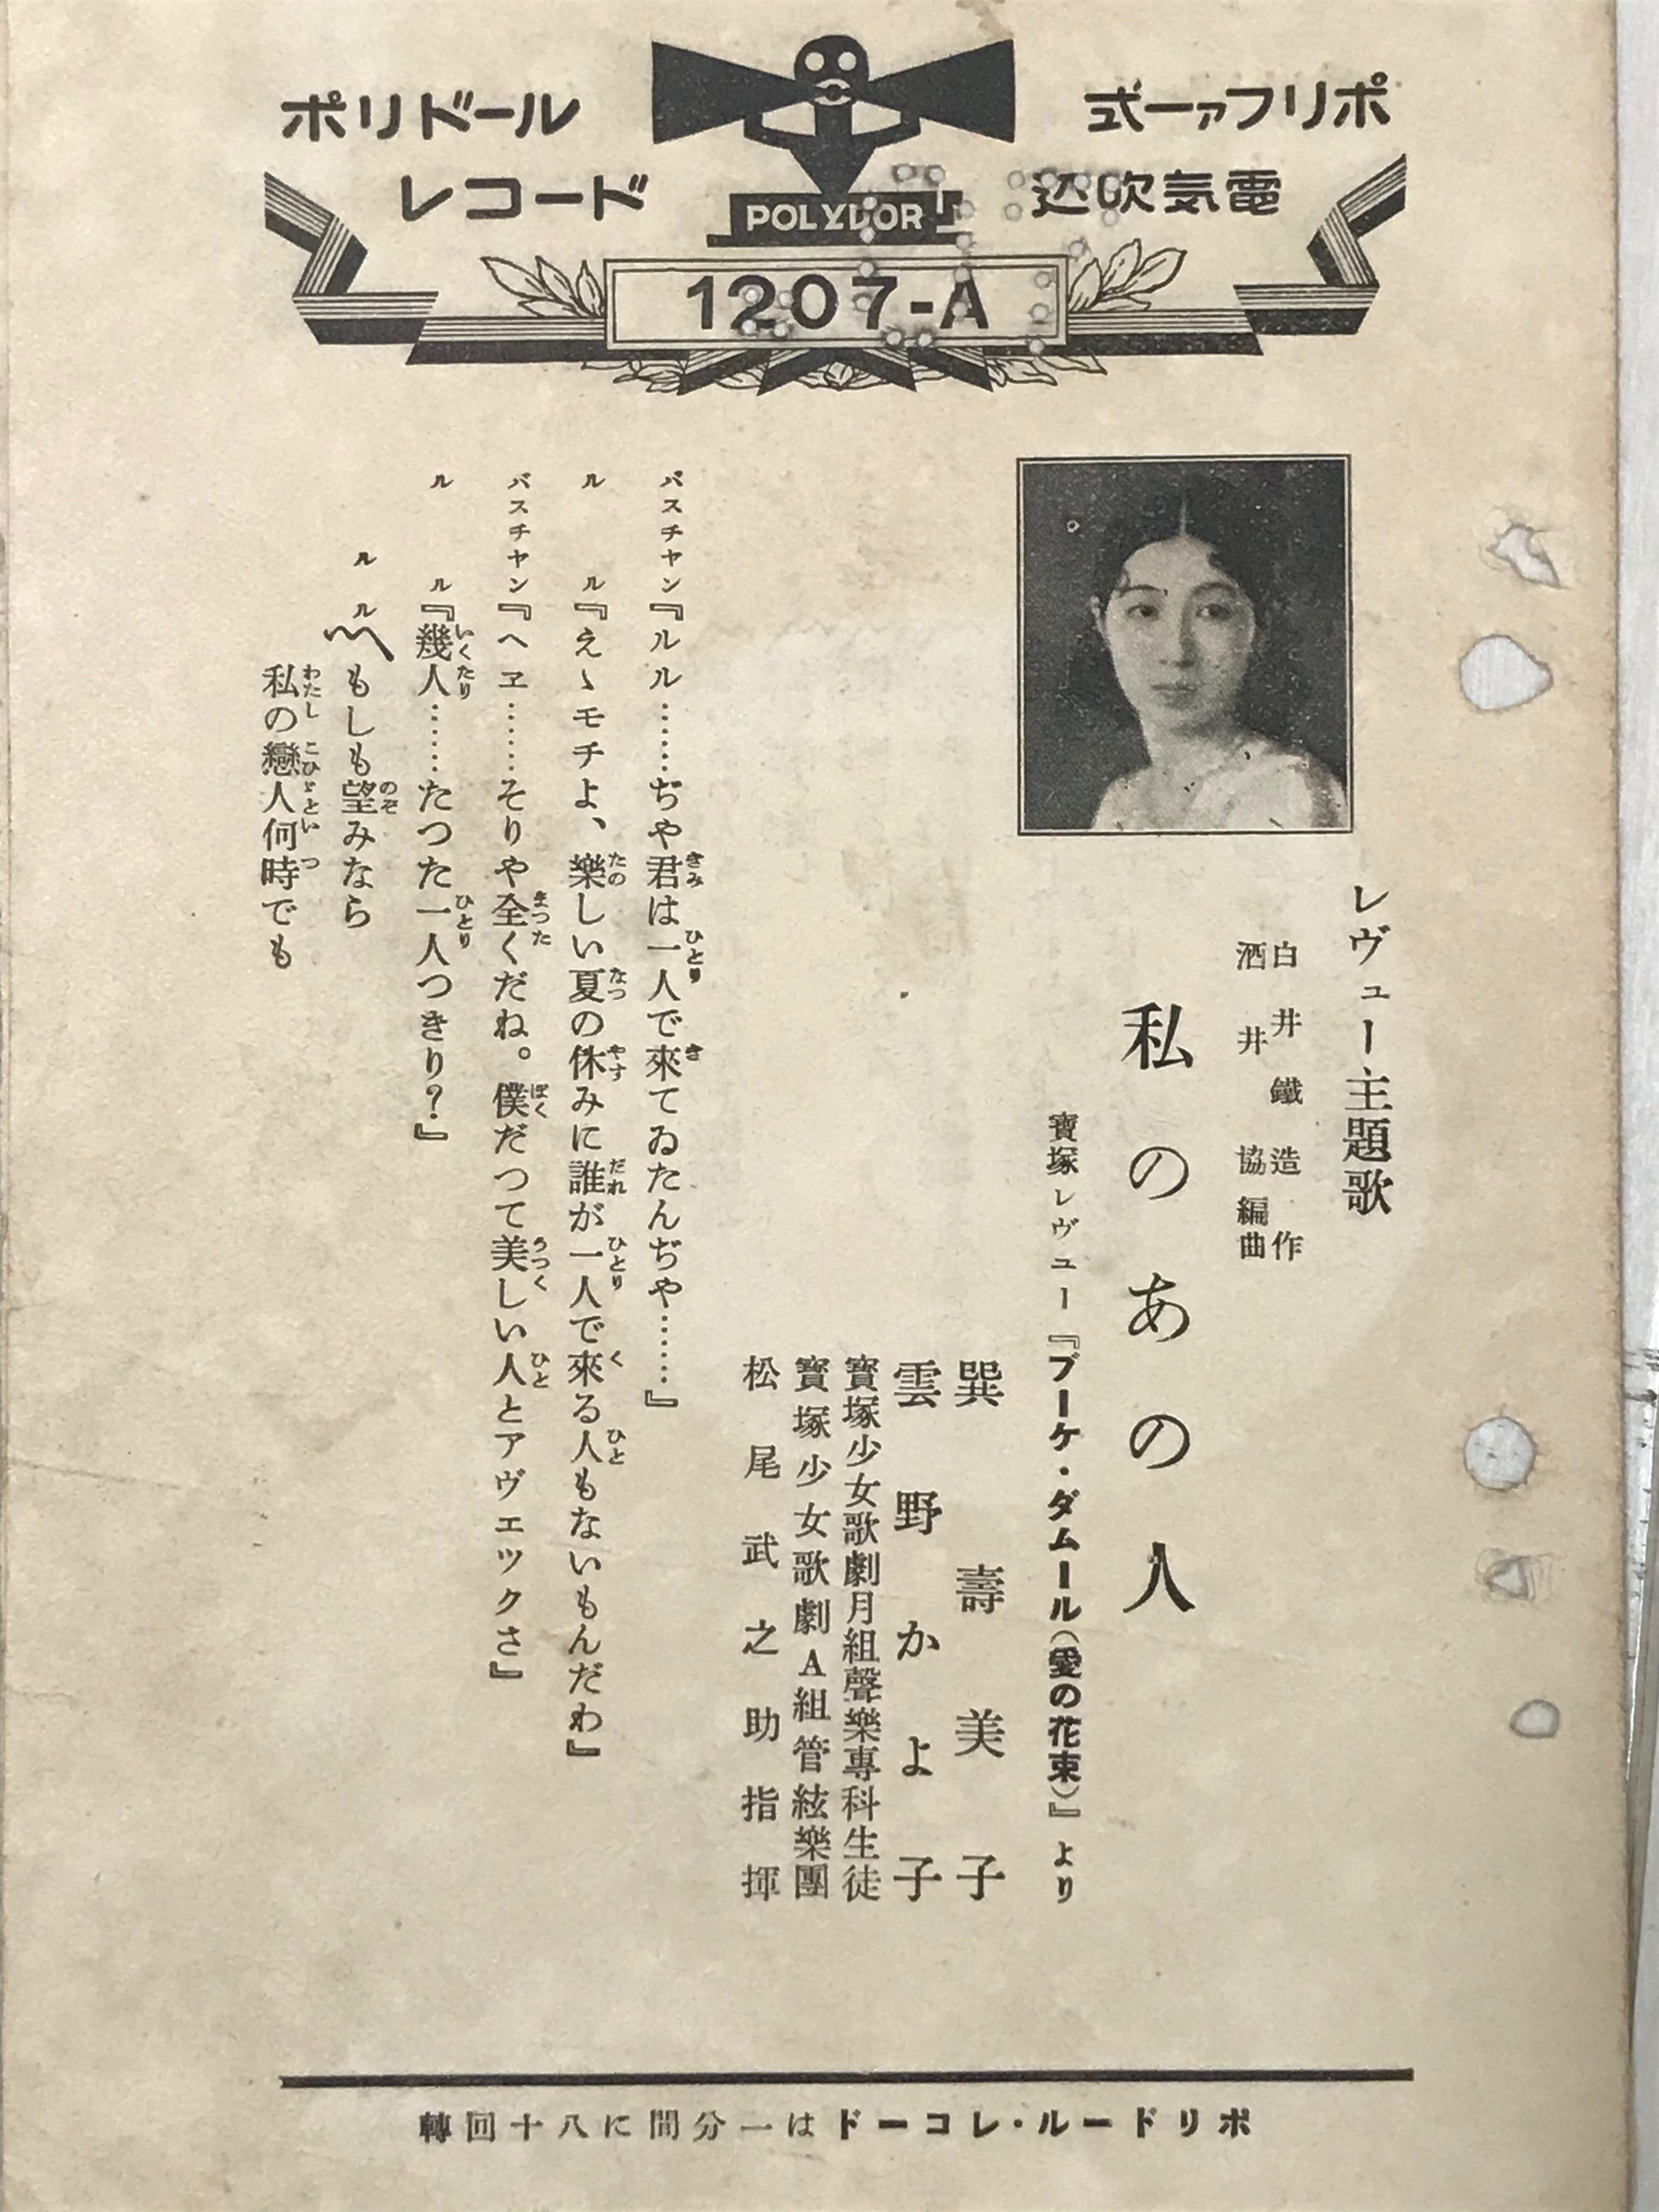 ポリドール
レコード
ポリファー式
電気吹込
POLYDOR
1207-A
レヴュー主題歌
白井鐵造作
酒井協編曲
私のあの人
寶塚レヴュー『ブーケ・ダムール(愛の花束)』より
巽壽美子
雲野かよ子
寶塚少女歌劇月組聲樂專科生徒
寶塚少女歌劇A組管絃樂團
松尾武之助指揮
バスチヤン『ルル………ぢや君は一人で來てゐたんぢや………』
きみ ひとり き
ルル『えゝモチよ、樂しい夏の休みに誰が一人で來る人もないもんだわ』
たの なつ やす だれ ひとり く ひと
バスチヤン『ヘヱ………そりや全くだね。僕だつて美しい人とアヴエツクさ』
まつた ぼく うつく ひと
ルル『幾人………たつた一人つきり?』
いくたり ひとり
ルル〽もしも望みなら
のぞ
私の戀人何時でも
わたし こひゞと いつ
ポリドール・レコードは一分間に八十回轉